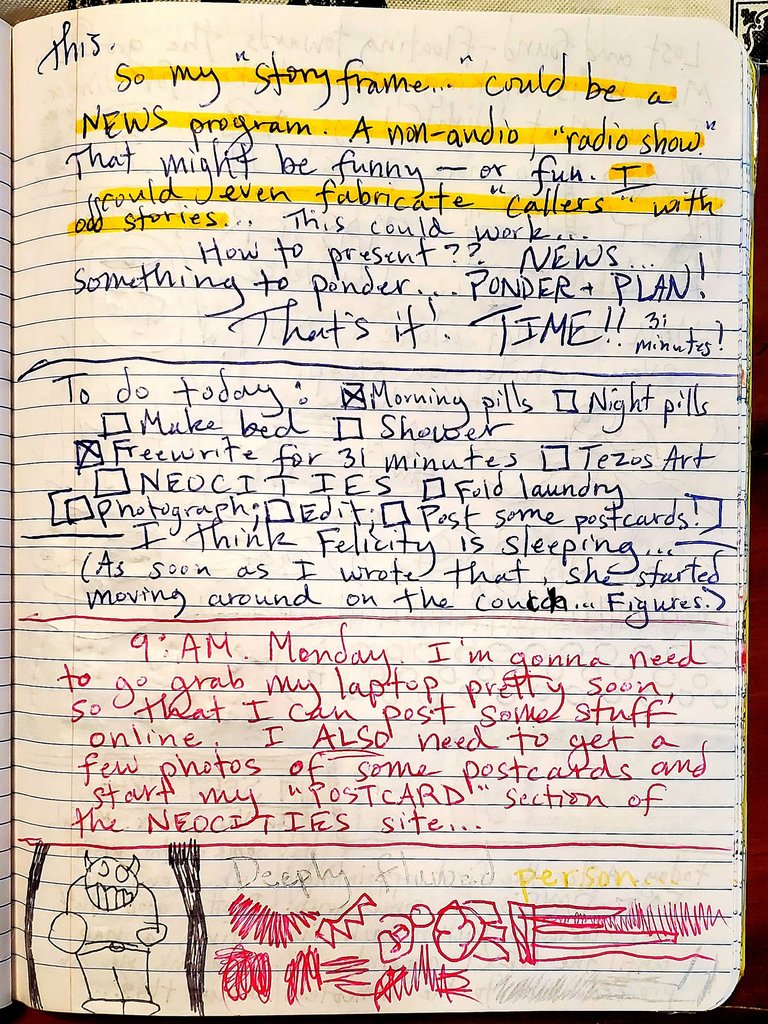 this.
So my "story frame..." could be a
NEWS program. A non-audio, "radio show."
That might be funny — or fun. I
could even fabricate "callers" with
odd stories... This could work...
How to present?? NEWS...
Something to ponder... PONDER + PLAN!
That's it! TIME!! 31
minutes!
To do today: ☒ Morning pills ☐ Night pills
☐ Make bed ☐ Shower
☒ Freewrite for 31 minutes ☐ Tezos Art
☐ NEOCITIES ☐ Fold laundry
[☐ Photograph; ☐ Edit; ☐ Post some postcards!]
I think Felicity is sleeping...
(As soon as I wrote that, she started
moving around on the couch... Figures.)
9:AM. Monday. I'm gonna need
to go grab my laptop pretty soon,
so that I can post some stuff
online. I ALSO need to get a
few photos of some postcards and
start my "POSTCARD" section of
the NEOCITIES site...
Deeply flawed person...